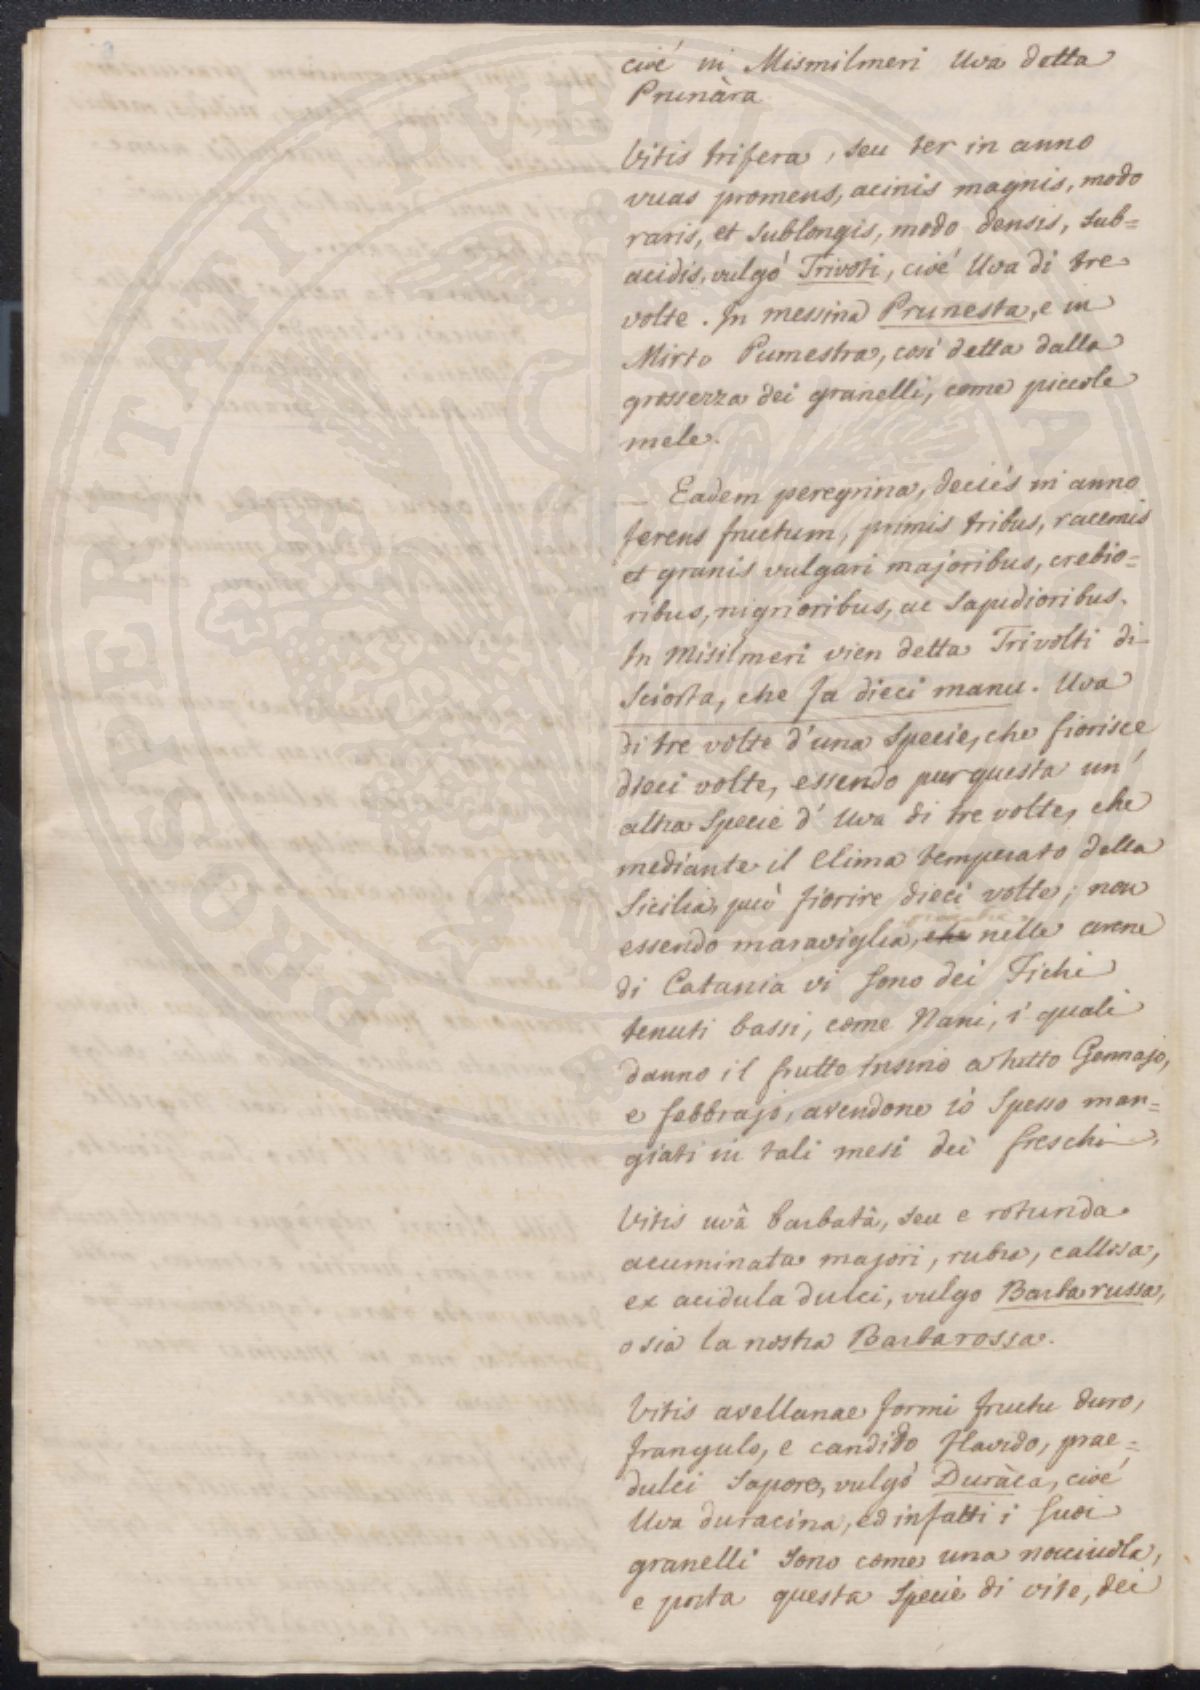 cioé in Mismilmeri Uva detta
Prunàra
Vitis trifera, seu ter in anno
vuas promens, acinis magnis, modo
raris, et sublongis, modo densis, sub=
acidis, vulgó Trivoti, cioé Uva di tre
volte. In messina Prunesta, e in
Mirto Pumestra, cosi detta dalla
grossezza dei granelli, come piccole
mele.
— Eadem peregrina, deciès in anno
ferens fructum, primis tribus, racemis
et granis vulgari majoribus, crebio=
ribus, nigrioribus, ac sapidioribus.
In Misilmeri vien detta Trivolti di
Sciorta, che fa dieci manu. Uva
di tre volte d'una specie, che fiorisce
dieci volte, essendo pur questa un'
altra specie d'Uva di tre volte, che
mediante il Clima temperato della
Sicilia, può fiorire dieci volte; non
essendo maraviglia, che nelle arene
di Catania vi sono dei Fichi
tenuti bassi, come Nani, i quali
danno il frutto insino a tutto Gennajo,
e febbrajo, avendone iò spesso man=
giati in tali mesi dei freschi.
Vitis uvâ barbatâ, seu e rotunda
acuminata majori, rubra, callosa,
ex acidula dulci, vulgo Barbarussa,
o sia la nostra Barbarossa.
Vitis avellanae formi fructu duro,
frangulo, e candido flavido, prae=
dulci sapore, vulgó Duràca, cioé
Uva duracina, ed infatti i suoi
granelli sono come una nocciuola,
e porta questa specie di vite, dei
PROSPERITATI PVBLICAE